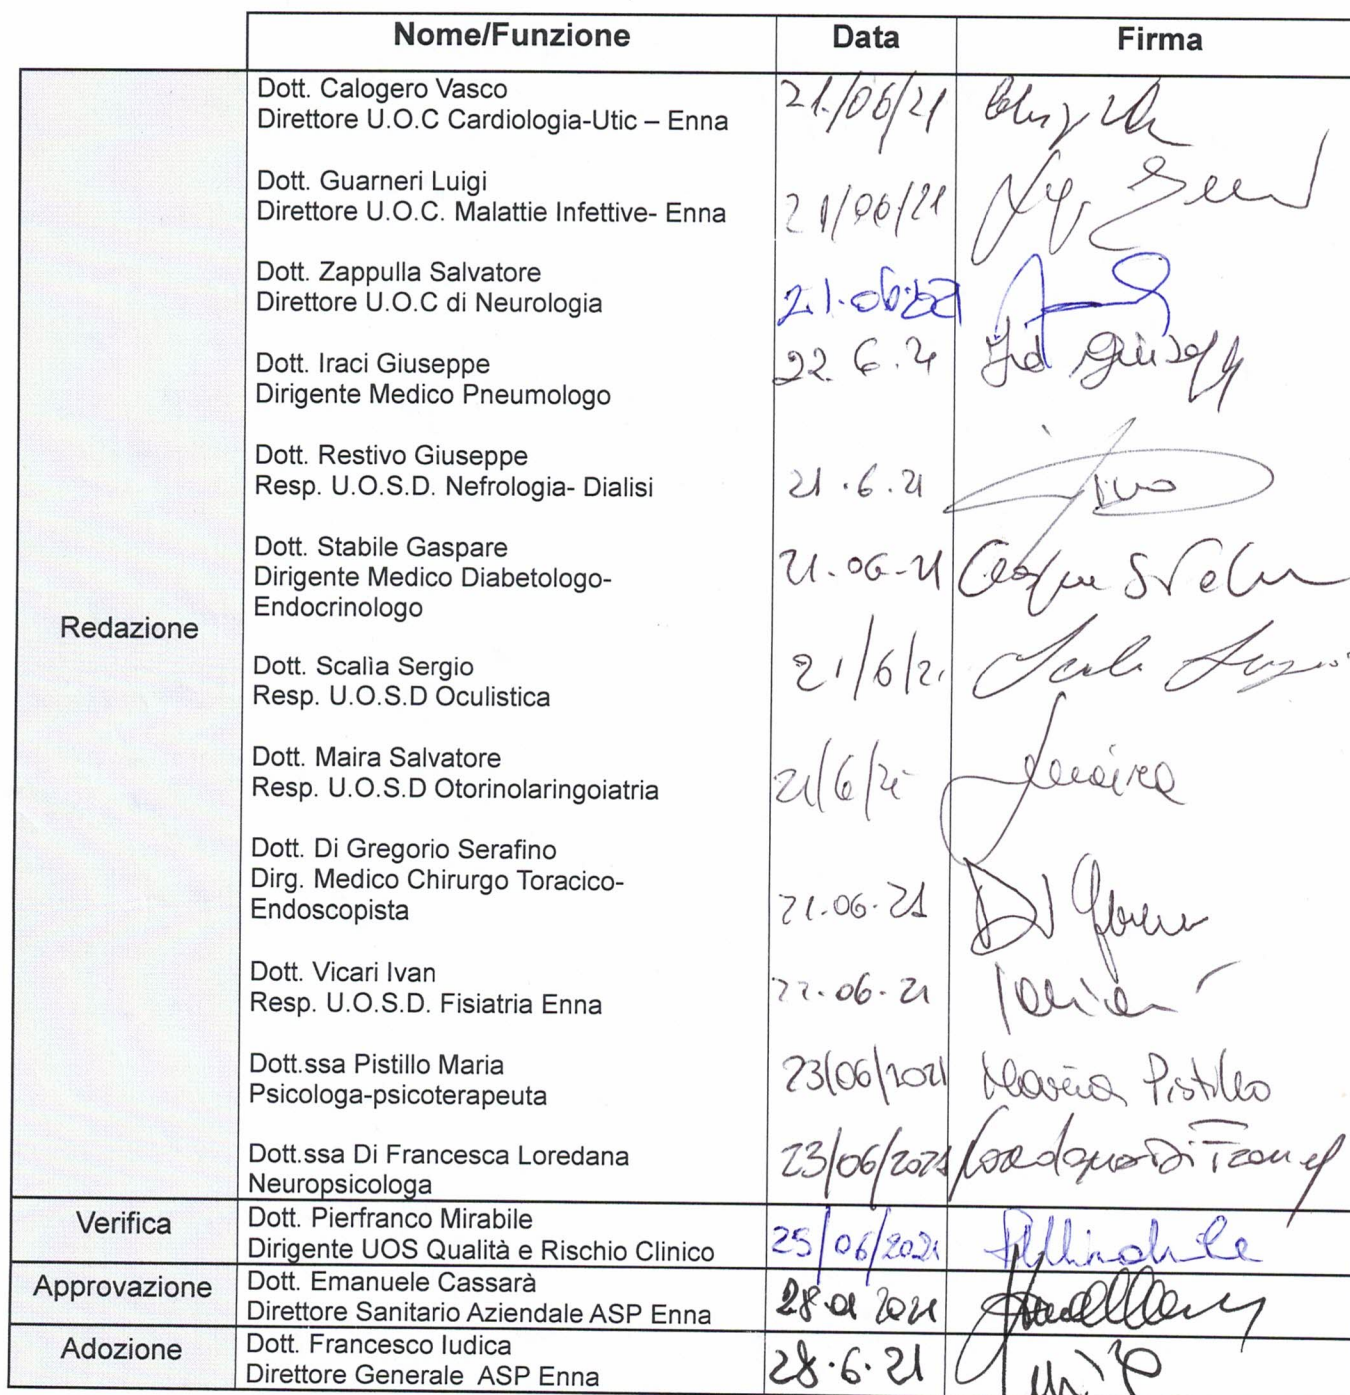 Nome/Funzione Data Firma
Redazione
Dott. Calogero Vasco
Direttore U.O.C Cardiologia-Utic – Enna
21/06/21
Dott. Guarneri Luigi
Direttore U.O.C. Malattie Infettive- Enna
21/06/21
Dott. Zappulla Salvatore
Direttore U.O.C di Neurologia
Dott. Iraci Giuseppe
Dirigente Medico Pneumologo
22.6.21
Dott. Restivo Giuseppe
Resp. U.O.S.D. Nefrologia- Dialisi
21.6.21
Dott. Stabile Gaspare
Dirigente Medico Diabetologo-
Endocrinologo
21.06.21
Dott. Scalia Sergio
Resp. U.O.S.D Oculistica
21/6/21
Dott. Maira Salvatore
Resp. U.O.S.D Otorinolaringoiatria
21/6/21 Maira
Dott. Di Gregorio Serafino
Dirg. Medico Chirurgo Toracico-
Endoscopista
21.06.21
Dott. Vicari Ivan
Resp. U.O.S.D. Fisiatria Enna
22.06.21
Dott.ssa Pistillo Maria
Psicologa-psicoterapeuta
23/06/2021 Maria Pistillo
Dott.ssa Di Francesca Loredana
Neuropsicologa
23/06/2021
Verifica
Dott. Pierfranco Mirabile
Dirigente UOS Qualità e Rischio Clinico
25/06/2021
Approvazione
Dott. Emanuele Cassarà
Direttore Sanitario Aziendale ASP Enna
Adozione
Dott. Francesco Iudica
Direttore Generale ASP Enna
28.6.21